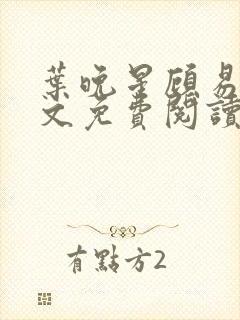 葉晚星顧易
文免費閱讀
有點方2